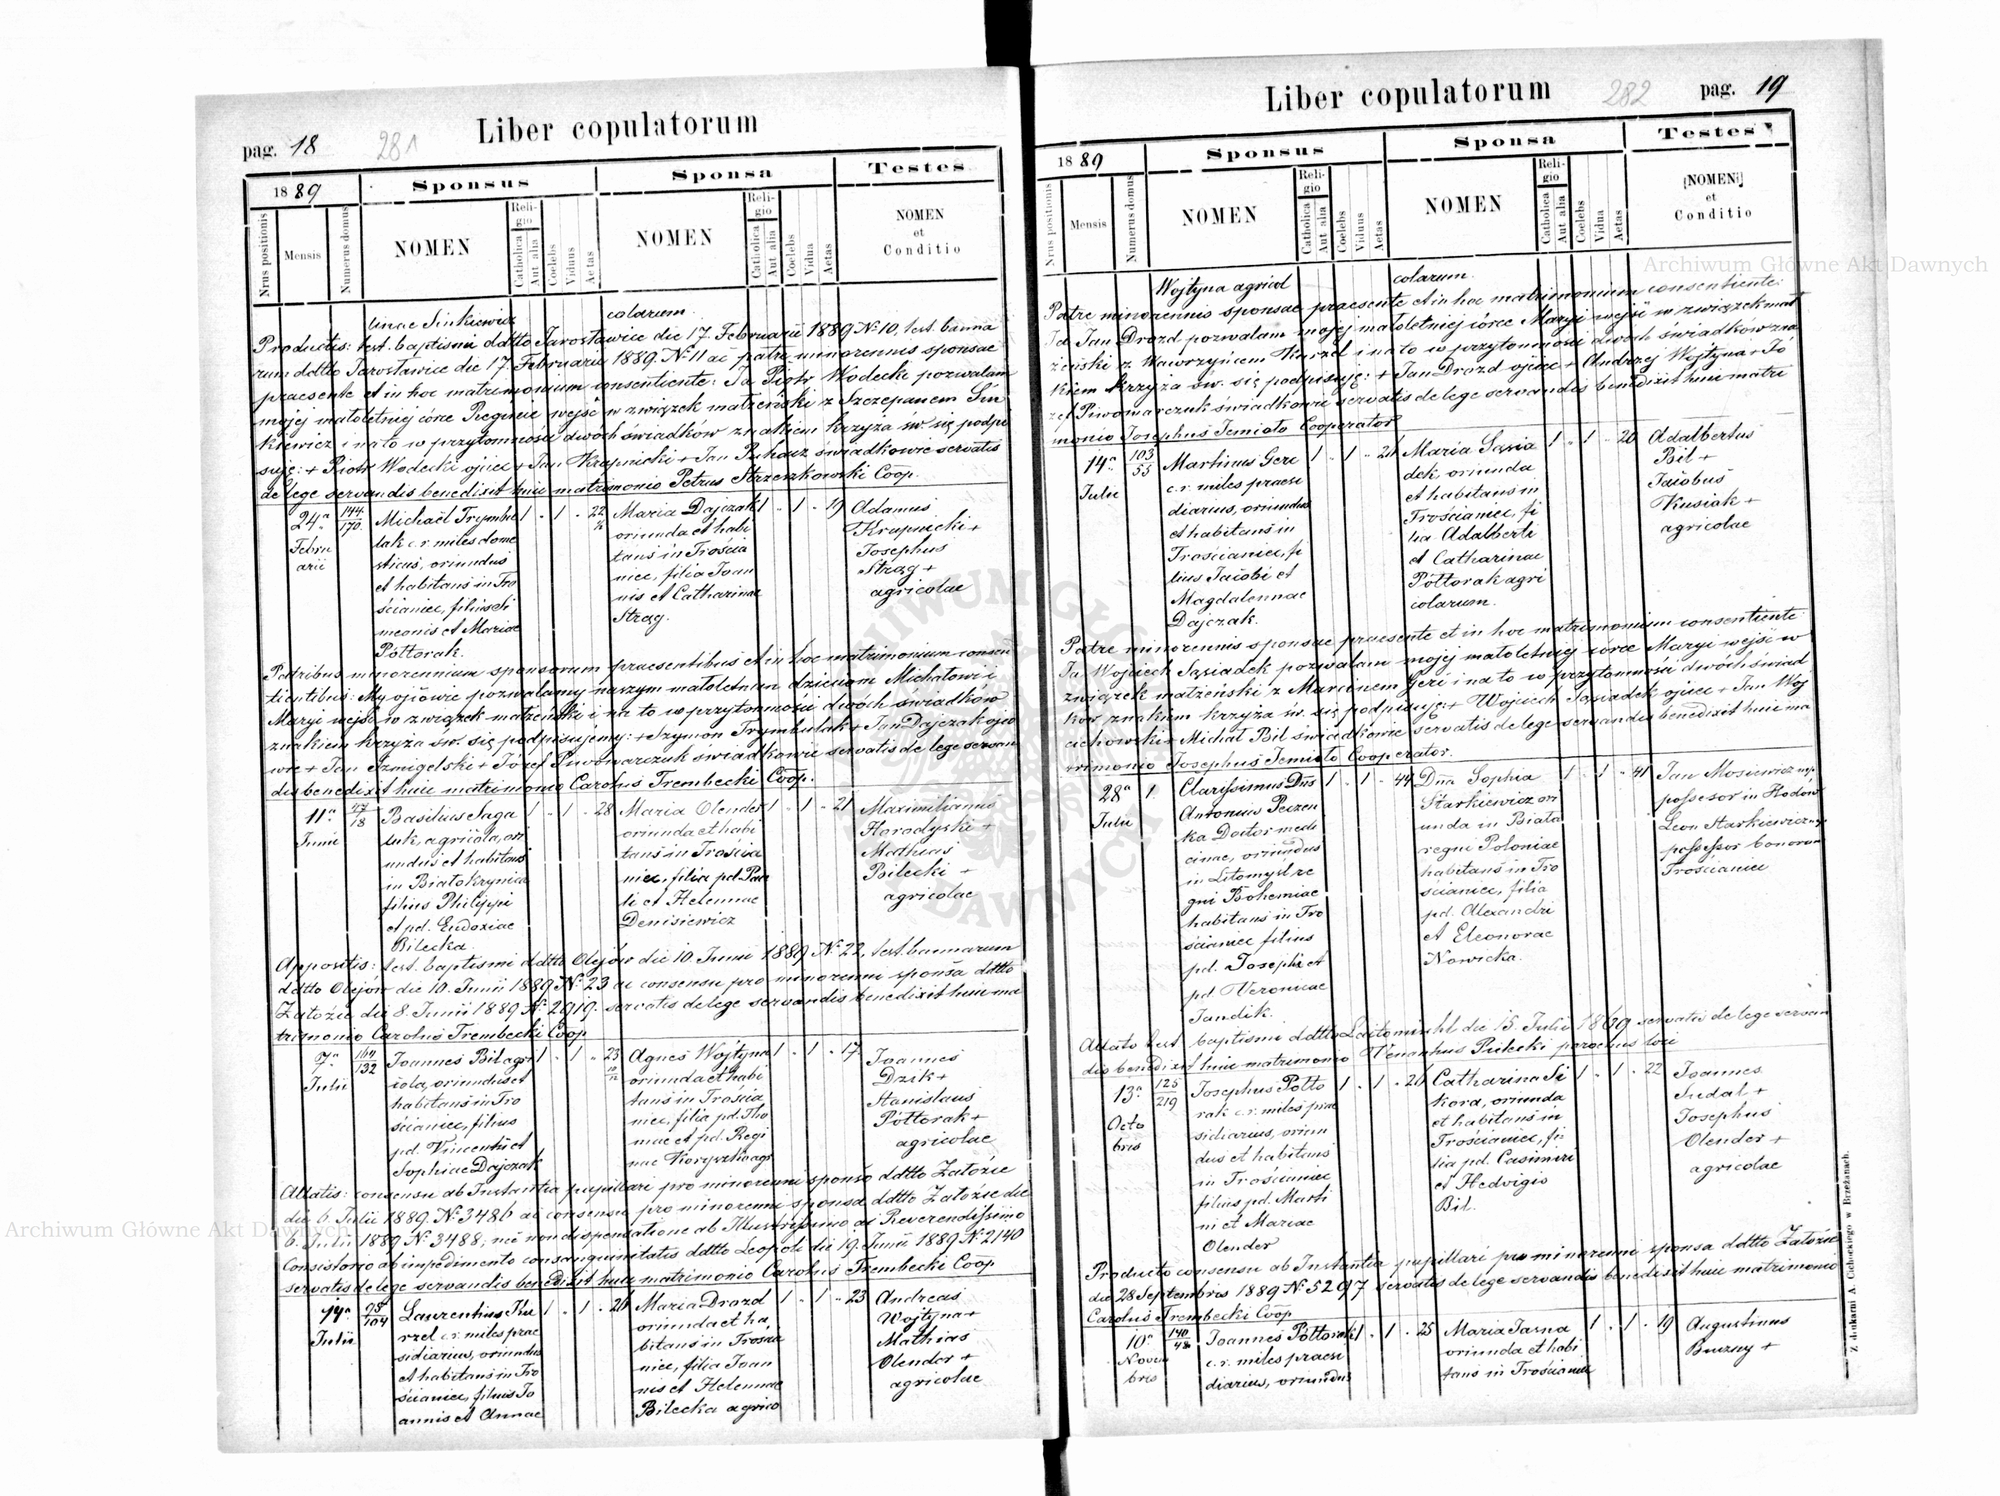 pag. 18
281
Liber copulatorum
1889
Sponsus
Sponsa
Testes
Nrus positionis
Mensis
Numerus domus
NOMEN
Religio
Catholica
Aut alia
Coelebs
Viduus
Aetas
NOMEN
Religio
Catholica
Aut alia
Coelebs
Vidua
Aetas
NOMEN
et
Conditio
linae Sinkiewicz
colarum.
Productis: test. baptismi ddtto Jarosławice die 17. Februarii 1889 № 10, test. banna
rum ddtto Jarosławice die 17. Februarii 1889. № 11 ac patre minorennis sponsae
praesente et in hoc matrimonium consentiente: Ja Piotr Wodecki pozwalam
mojej małoletniej córce Reginie wejść w związek małżeński z Szczepanem Sin
kiewicz i na to w przytomności dwóch świadków znakiem krzyża św. się podpi
suję: + Piotr Wodecki ojciec + Jan Krapnicki + Jan Puhacz świadkowie servatis
de lege servandis benedixit huic matrimonio Petrus Strzeszkowski Coop.
24a
Febru
arii
144
170
Michaël Trymbu
lak c. r. miles dome
sticus, oriundus
et habitans in Tro
ścianiec, filius Si
meonis et Mariae
Półtorak.
1 " 1 " 22
Maria Dajczak
oriunda et habi
tans in Trościa
niec, filia Joan
nis et Catharinae
Strąg.
1 " 1 " 19
Adamus
Krupnicki +
Josephus
Strąg +
agricolae
Patribus minorennium sponsorum praesentibus et in hoc matrimonium consen
tientibus: My ojcowie pozwalamy naszym małoletnim dzieciom Michałowi i
Maryi wejść w związek małżeński i na to w przytomności dwóch świadków
znakiem krzyża św. się podpisujemy: + Szymon Trymbulak + Jan Dajczak ojco
wie + Jan Szmigelski + Józef Piwowarczuk świadkowie servatis de lege servan
dis benedixit huic matrimonio Carolus Trembecki Coop.
11a
Junii
47
18
Basilius Saga
luk, agricola, ori
undus et habitans
in Białokrynica
filius Philippi
et pd. Eudoxiae
Bilecka.
1 " 1 " 28
Maria Olender
oriunda et habi
tans in Trościa
niec, filia pd. Pau
li et Helennae
Denisiewicz
1 " 1 " 21
Maximilianus
Horodyski +
Mathias
Bilecki +
agricolae
Appositis: test. baptismi ddtto Olejów die 10. Junii 1889 № 22, test. bannorum
ddtto Olejów die 10. Junii 1889 № 23 ac consensu pro minorenni sponsa ddtto
Załoźce die 8. Junii 1889 № 2919. servatis de lege servandis benedixit huic ma
trimonio Carolus Trembecki Coop
7a
Julii
164
132
Joannes Bil agri
cola, oriundus et
habitans in Tro
ścianiec, filius
pd. Vincentii et
Sophiae Dajczak
1 " 1 " 23
10
12
Agnes Wojtyna
oriunda et habi
tans in Trościa
niec, filia pd. Tho
mae et pd. Regi
nae Koryszko agr.
1 " 1 " 17
Joannes
Dzik +
Stanislaus
Półtorak +
agricolae
Allatis: consensu ab Instantia pupillari pro minorenni sponso ddtto Załoźce
die 6. Julii 1889. № 3486 ac consensu pro minorenni sponsa ddtto Załoźce die
6. Julii 1889 № 3488, nec non dispensatione ab Illustrissimo ac Reverendissimo
Consistorio ab impedimento consanguinitatis ddtto Leopoli die 19. Junii 1889 № 2140
servatis de lege servandis benedixit huic matrimonio Carolus Trembecki Coop
14a
Julii
95
104
Laurentius Ku
rzel c. r. miles prae
sidiarius, oriundus
et habitans in Tro
ścianiec, filius Jo
annis et Annae
1 " 1 " 26
Maria Drozd
oriunda et ha
bitans in Trościa
niec, filia Joan
nis et Helennae
Bilecka agrico
1 " 1 " 23
Andreas
Wojtyna +
Mathias
Olender +
agricolae
Liber copulatorum
282
pag. 19
1889
Sponsus
Sponsa
Testes
Nrus positionis
Mensis
Numerus domus
NOMEN
Religio
Catholica
Aut alia
Coelebs
Viduus
Aetas
NOMEN
Religio
Catholica
Aut alia
Coelebs
Vidua
Aetas
NOMEN
et
Conditio
Wojtyna agricol
colarum.
Patre minorennis sponsae praesente et in hoc matrimonium consentiente:
Ja Jan Drozd pozwalam mojej małoletniej córce Maryi wejść w związek mał
żeński z Wawrzyńcem Kurzel i na to w przytomności dwóch świadków zna
kiem krzyża św. się podpisuję: + Jan Drozd ojciec + Andrzej Wojtyna + Jó
zef Piwowarczuk świadkowie servatis de lege servandis benedixit huic matri
monio Josephus Temioto Cooperator
14a
Julii
103
55
Martinus Gere
c. r. miles praesi
diarius, oriundus
et habitans in
Trościaniec, fi
lius Jacobi et
Magdalennae
Dajczak.
1 " 1 " 21
Maria Sąsia
dek, oriunda
et habitans in
Trościaniec, fi
lia Adalberti
et Catharinae
Półtorak agri
colarum.
1 " 1 " 20
Adalbertus
Bil +
Jacobus
Kusiak +
agricolae
Patre minorennis sponsae praesente et in hoc matrimonium consentiente
Ja Wojciech Sąsiadek pozwalam mojej małoletniej córce Maryi wejść w
związek małżeński z Marcinem Gere i na to w przytomności dwóch świad
ków znakiem krzyża św. się podpisuję: + Wojciech Sąsiadek ojciec + Jan Woj
ciechowski + Michał Bil świadkowie servatis de lege servandis benedixit huic ma
trimonio Josephus Temioto Cooperator.
28a
Julii
1
Clarissimus Dnus
Antonius Peczen
ka Doctor medi
cinae, oriundus
in Litomyśl re
gni Bohemiae
habitans in Tro
ścianiec filius
pd. Josephi et
pd. Veronicae
Jandik.
1 " 1 " 44
Dna Sophia
Starkiewicz ori
unda in Biała
regni Poloniae
habitans in Tro
ścianiec, filia
pd. Alexandri
et Eleonorae
Nowicka.
1 " 1 " 41
Jan Mosiewicz mp
possesor in Hodów
Leon Starkiewicz mp
possessor bonorum
Trościaniec
Allato test. baptismi ddtto Leitomischl die 15. Julii 1869 servatis de lege servan
dis benedixit huic matrimonio Venantius Pilecki parochus loci
13a
Octo
bris
125
219
Josephus Półto
rak c. r. miles prae
sidiarius, oriun
dus et habitans
in Trościaniec
filius pd. Marti
ni et Mariae
Olender
1 " 1 " 26
Catharina Si
kora, oriunda
et habitans in
Trościaniec, fi
lia pd. Casimiri
et Hedvigis
Bil.
1 " 1 " 22
Joannes
Sudal +
Josephus
Olender +
agricolae
Producto consensu ab Instantia pupillari pro minorenni sponsa ddtto Załoźce
die 28 Septembris 1889 № 5297 servatis de lege servandis benedixit huic matrimonio
Carolus Trembecki Coop
10a
Novem
bris
140
48
Joannes Półtorak
c. r. miles praesi
diarius, oriundus
1 " 1 " 25
Maria Jasna
oriunda et habi
tans in Trościaniec
1 " 1 " 19
Augustinus
Buczny +
Z drukarni A. Cichockiego w Brzeżanach.
Archiwum Główne Akt Dawnych
Archiwum Główne Akt Dawnych
ARCHIWUM GŁÓWNE AKT DAWNYCH